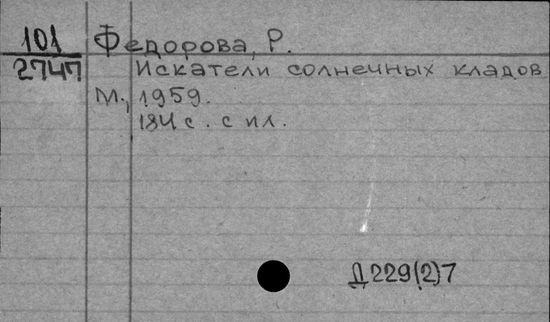 101 Федорова, Р.
2747 Искатели солнечных кладов
М., 1959.
184 с. с ил.
Д229(2)7